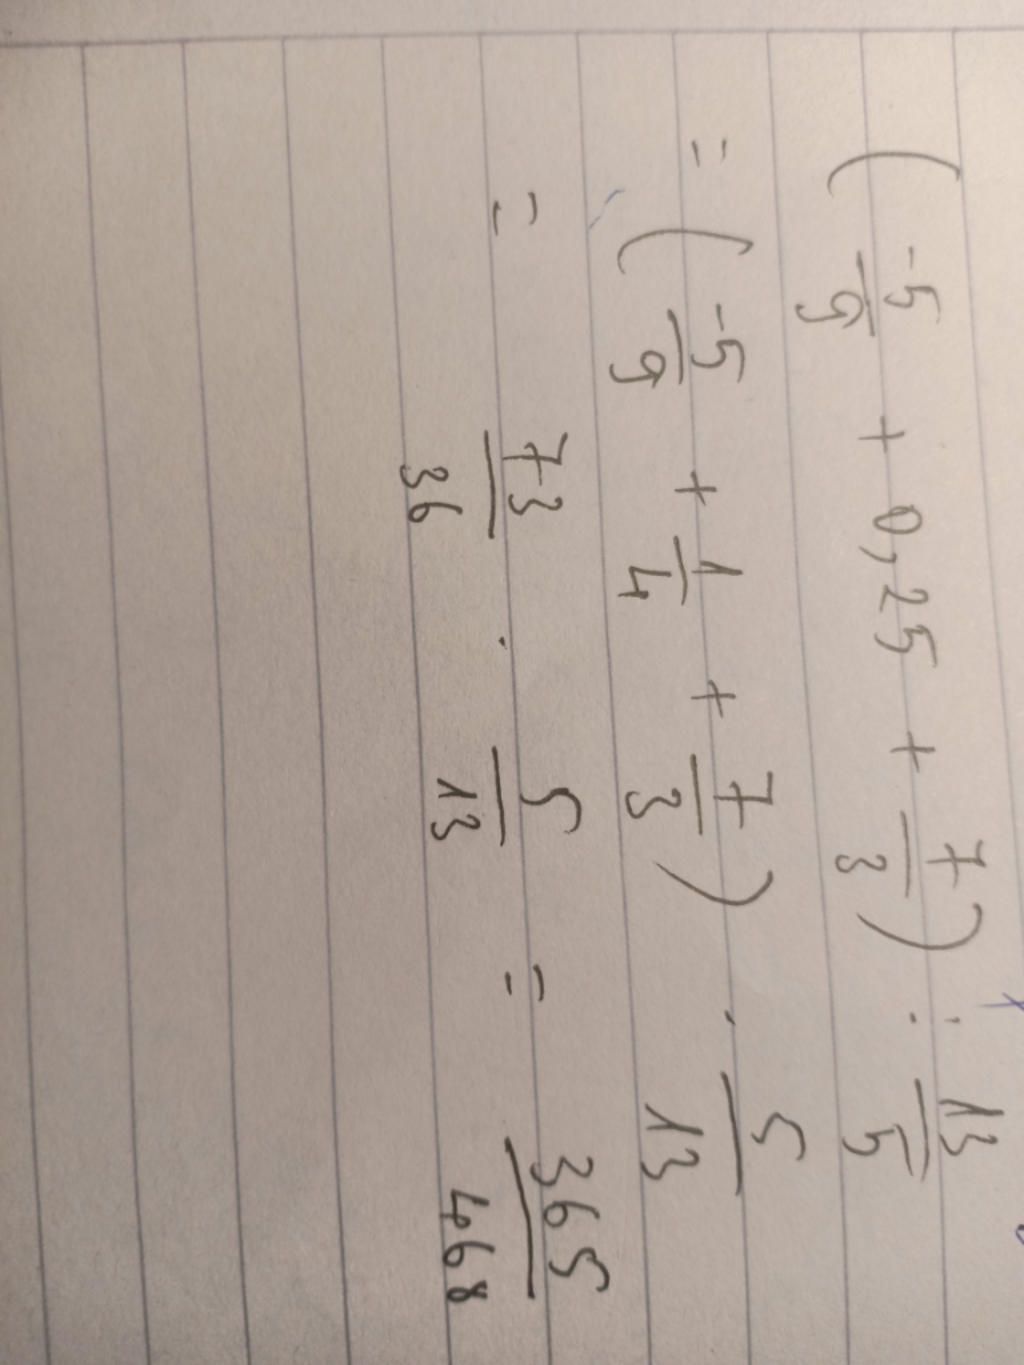 (-5/9 + 0,25 + 7/3) : 13/5
= (-5/9 + 1/4 + 7/3) . 5/13
= 73/36 . 5/13 = 365/468